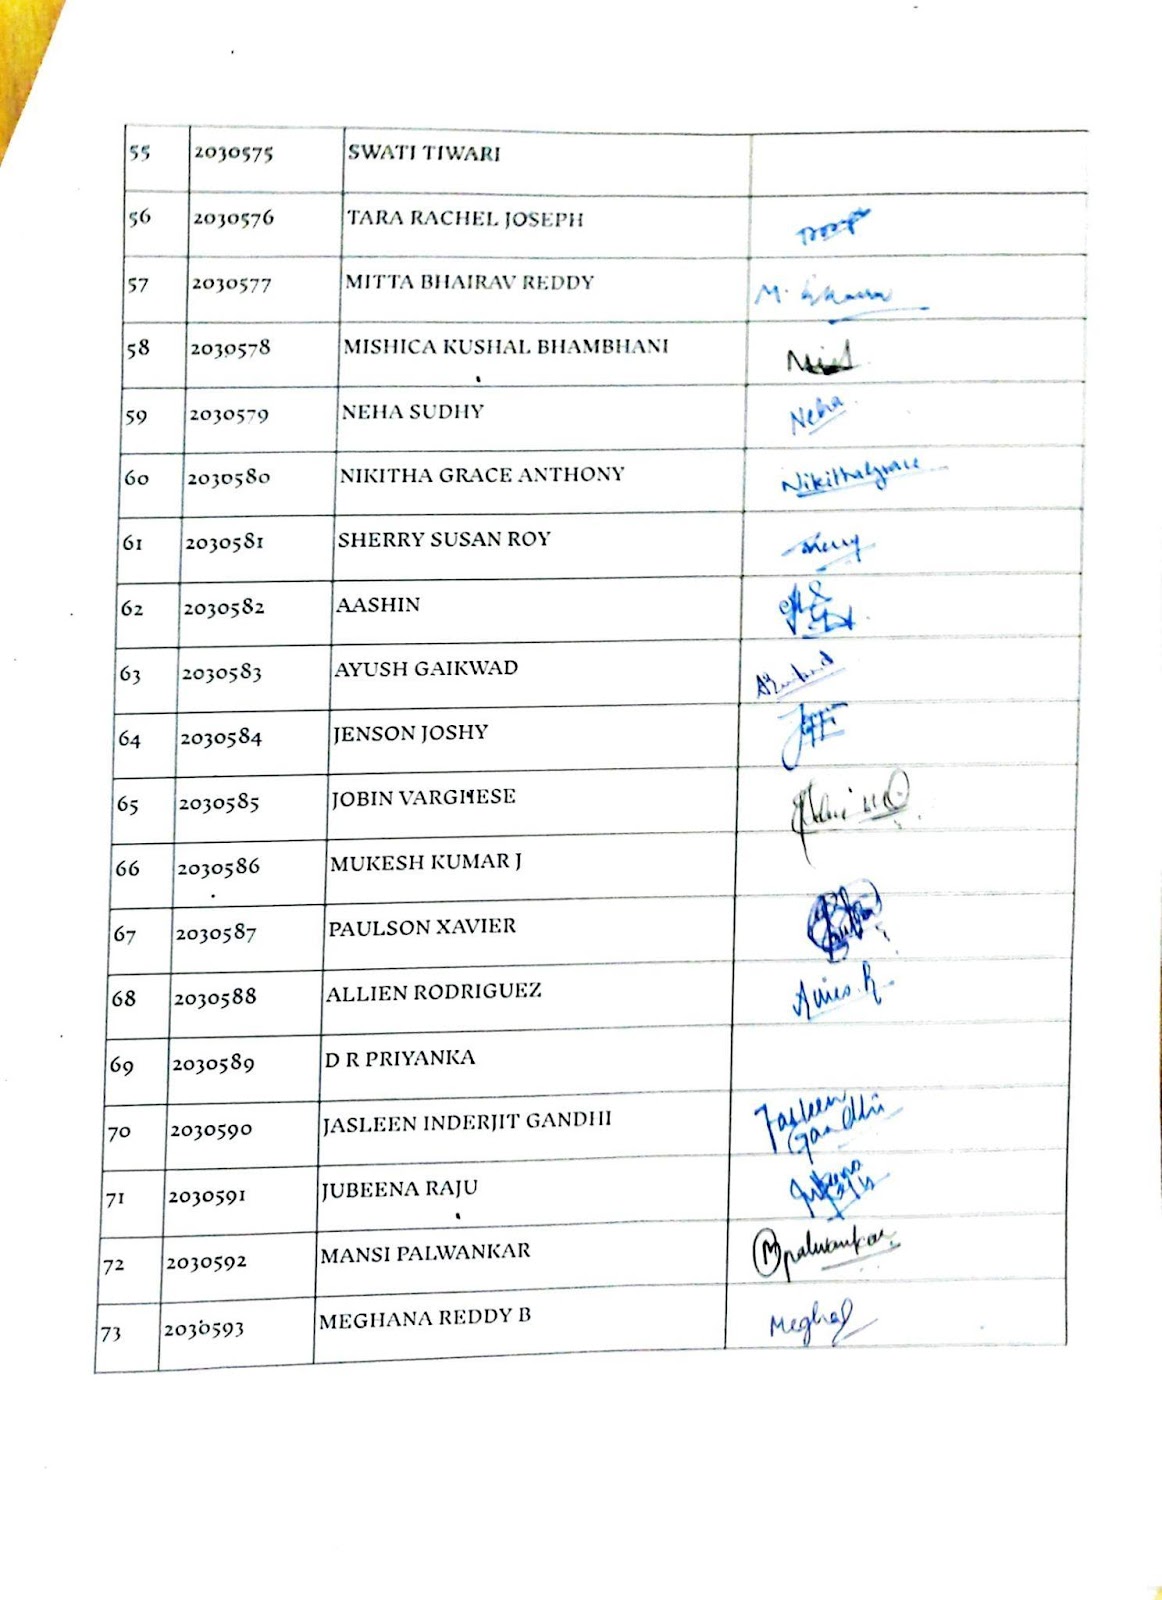 55 2030575 SWATI TIWARI
56 2030576 TARA RACHEL JOSEPH
57 2030577 MITTA BHAIRAV REDDY M.
58 2030578 MISHICA KUSHAL BHAMBHANI
59 2030579 NEHA SUDHY Neha
60 2030580 NIKITHA GRACE ANTHONY NikithaGrace
61 2030581 SHERRY SUSAN ROY
62 2030582 AASHIN
63 2030583 AYUSH GAIKWAD
64 2030584 JENSON JOSHY
65 2030585 JOBIN VARGHESE
66 2030586 MUKESH KUMAR J
67 2030587 PAULSON XAVIER
68 2030588 ALLIEN RODRIGUEZ
69 2030589 D R PRIYANKA
70 2030590 JASLEEN INDERJIT GANDHI Jasleen
Gandhi
71 2030591 JUBEENA RAJU
72 2030592 MANSI PALWANKAR Mpalwankar
73 2030593 MEGHANA REDDY B